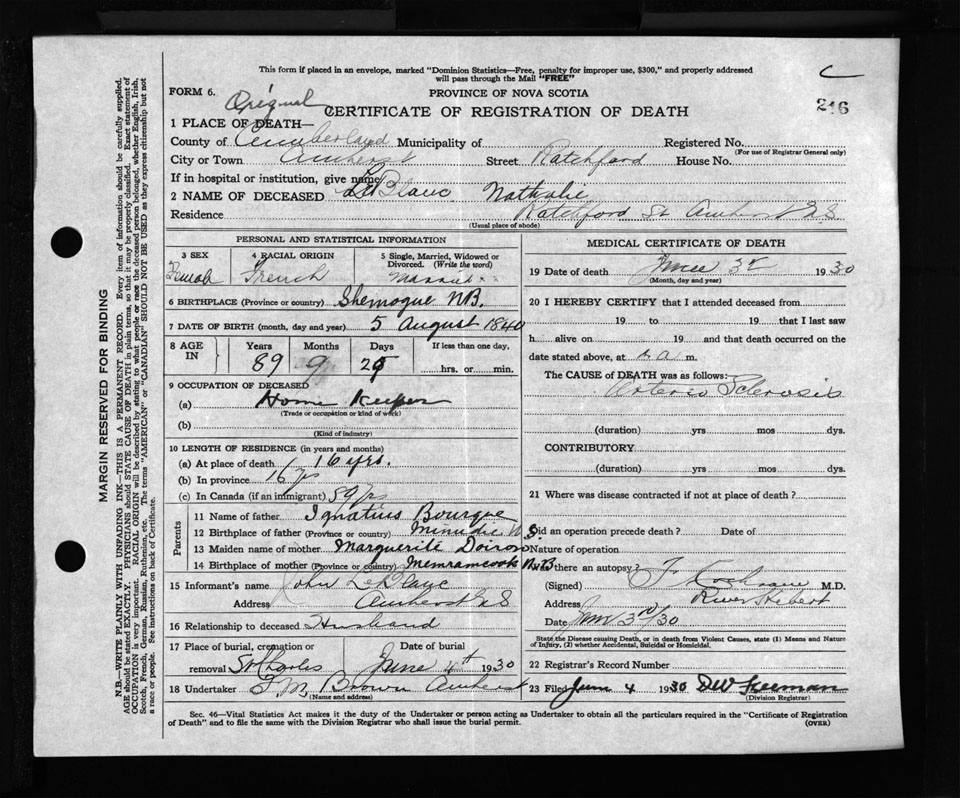 This form if placed in an envelope, marked "Dominion Statistics—Free, penalty for improper use, $300," and properly addressed
will pass through the Mail "FREE"
C
FORM 6.
PROVINCE OF NOVA SCOTIA
216
Original
CERTIFICATE OF REGISTRATION OF DEATH
1 PLACE OF DEATH—
County of Cumberland Municipality of Registered No.
(For use of Registrar General only)
City or Town Amherst Street Ratchford House No.
If in hospital or institution, give name
2 NAME OF DECEASED LeBlanc Nathalie
Residence Ratchford St Amherst NS
(Usual place of abode)
PERSONAL AND STATISTICAL INFORMATION
3 SEX Female
4 RACIAL ORIGIN French
5 Single, Married, Widowed or Divorced. (Write the word) Married
6 BIRTHPLACE (Province or country) Shemogue N.B.
7 DATE OF BIRTH (month, day and year) 5 August 1840
8 AGE IN Years Months Days If less than one day,
89 9 hrs. or min.
9 OCCUPATION OF DECEASED
(a) Home Keeper
(Trade or occupation or kind of work)
(b)
(Kind of industry)
10 LENGTH OF RESIDENCE (in years and months)
(a) At place of death 16 yrs.
(b) In province 16 yrs
(c) In Canada (if an immigrant) 89 yrs
Parents
11 Name of father Ignatius Bourque
12 Birthplace of father (Province or country) Minudie N.S.
13 Maiden name of mother Marguerite Doiron
14 Birthplace of mother (Province or country) Memramcook N.B
15 Informant's name John LeBlanc
Address Amherst NS
16 Relationship to deceased Husband
17 Place of burial, cremation or removal St Charles
Date of burial June 4th 1930
18 Undertaker Brown Amherst
(Name and address)
MEDICAL CERTIFICATE OF DEATH
19 Date of death June 3rd 1930
(Month, day and year)
20 I HEREBY CERTIFY that I attended deceased from
19 to 19 that I last saw
h alive on 19 and that death occurred on the
date stated above, at a. m.
The CAUSE of DEATH was as follows:
Arterio Sclerosis
(duration) yrs mos dys.
CONTRIBUTORY
(duration) yrs mos dys.
21 Where was disease contracted if not at place of death?
Did an operation precede death? Date of
Nature of operation
Was there an autopsy?
(Signed) Cochrane M.D.
Address River Hebert
Date June 3rd/30
State the Disease causing Death, or in death from Violent Causes, state (1) Means and Nature
of Injury, (2) whether Accidental, Suicidal or Homicidal.
22 Registrar's Record Number
23 Filed June 4 1930
(Division Registrar)
Sec. 46—Vital Statistics Act makes it the duty of the Undertaker or person acting as Undertaker to obtain all the particulars required in the "Certificate of Registration
of Death" and to file the same with the Division Registrar who shall issue the burial permit.
(OVER)
MARGIN RESERVED FOR BINDING
N.B.—WRITE PLAINLY WITH UNFADING INK—THIS IS A PERMANENT RECORD. Every item of information should be carefully supplied.
AGE should be stated EXACTLY. PHYSICIANS should STATE CAUSE OF DEATH in plain terms, so that it may be properly classified. Exact statement of
OCCUPATION is very important. RACIAL ORIGIN will be described by stating to what people or race the deceased person belonged, whether English, Irish,
Scotch, French, German, Russian, Ruthenian, etc. The terms "AMERICAN" or "CANADIAN" SHOULD NOT BE USED as they express citizenship but not
a race or people. See instructions on back of Certificate.